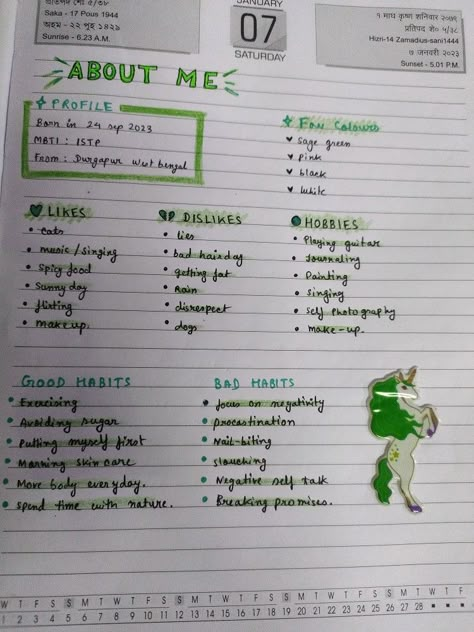 JANUARY
07
SATURDAY
Saka - 17 Pous 1944
Sunrise - 6.23 A.M.
१ माघ कृष्ण शनिवार २०७९
Hizri-14 Zamadius-sani1444
७ जनवरी २०२३
Sunset - 5.01 P.M.
ABOUT ME
PROFILE
Born in 24 sep 2023
MBTI : ISTP
From : Durgapur West bengal
Fav Colours
Sage green
pink
black
white
LIKES
cats
music/singing
spicy food
Sunny day
flirting
make up.
DISLIKES
lies
bad hairday
getting fat
Rain
disrespect
dogs
HOBBIES
Playing guitar
Journaling
Painting
singing
self photography
make-up.
GOOD HABITS
Exercising
Avoiding sugar
Putting myself first
Morning skin care
Move body everyday.
Spend time with nature.
BAD HABITS
focus on negativity
procastination
Nail-biting
slouching
Negative self talk
Breaking promises.
W T F S S M T W T F S S M T W T F S S M T W T F S S M T W T F
1 2 3 4 5 6 7 8 9 10 11 12 13 14 15 16 17 18 19 20 21 22 23 24 25 26 27 28